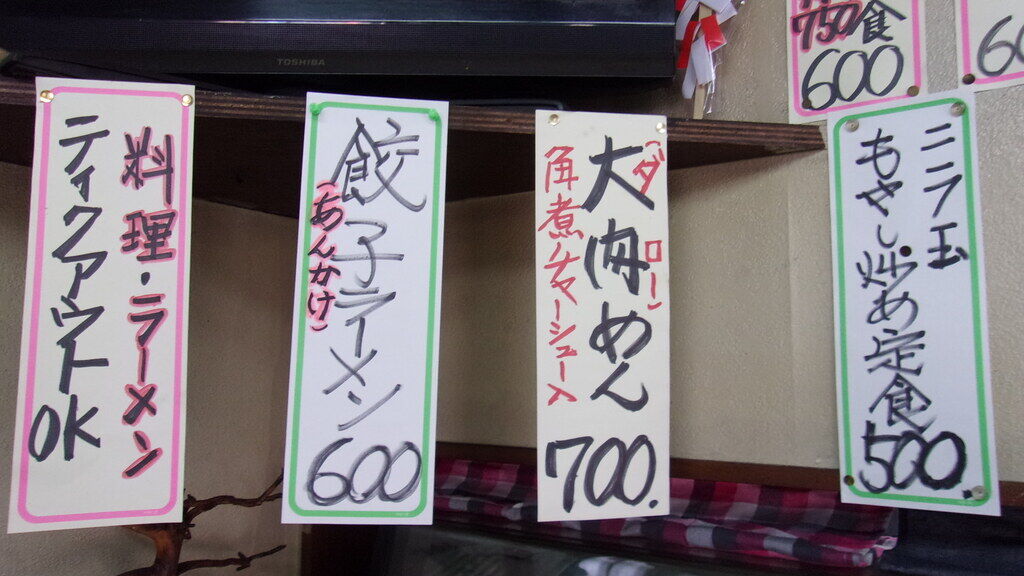 TOSHIBA
750食
600
60
料理・ラーメン
ティクアウト
OK
餃子ラーメン
(あんかけ)
600
(ダーロー)
大肉めん
角煮チャーシュー入
700.
ニラ玉
もやし炒め定食
500.